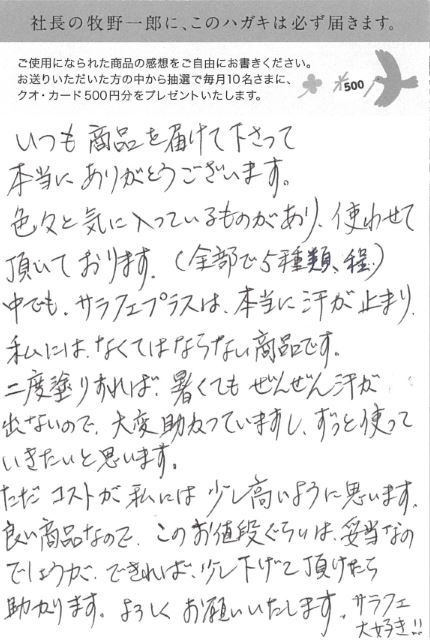 社長の牧野一郎に、このハガキは必ず届きます。
ご使用になられた商品の感想をご自由にお書きください。
お送りいただいた方の中から抽選で毎月10名さまに、
クオ・カード500円分をプレゼントいたします。
¥500
いつも商品を届けて下さって
本当にありがとうございます。
色々と気に入っているものがあり、使わせて
頂いております。(全部で5種類、程)
中でも、サラフェプラスは、本当に汗が止まり、
私には、なくてはならない商品です。
二度塗りすれば、暑くてもぜんぜん汗が
出ないので、大変助かっていますし、ずっと使って
いきたいと思います。
ただコストが私には少し高いように思います。
良い商品なので、このお値段ぐらいは、妥当なの
でしょうが、できれば、少し下げて頂けたら
助かります。よろしくお願いいたします。サラフェ
大好き!!